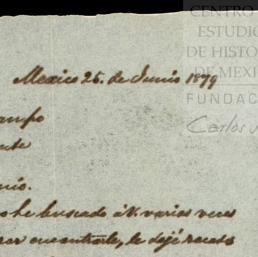 CENTRO
ESTUDI
DE HISTO
DE MEXI
FUNDAC
Carlos
Mexico 25. de Junio 1899
ampo
ente
nio.
he buscado á V. varias veces
encontrarle, le dejé recado